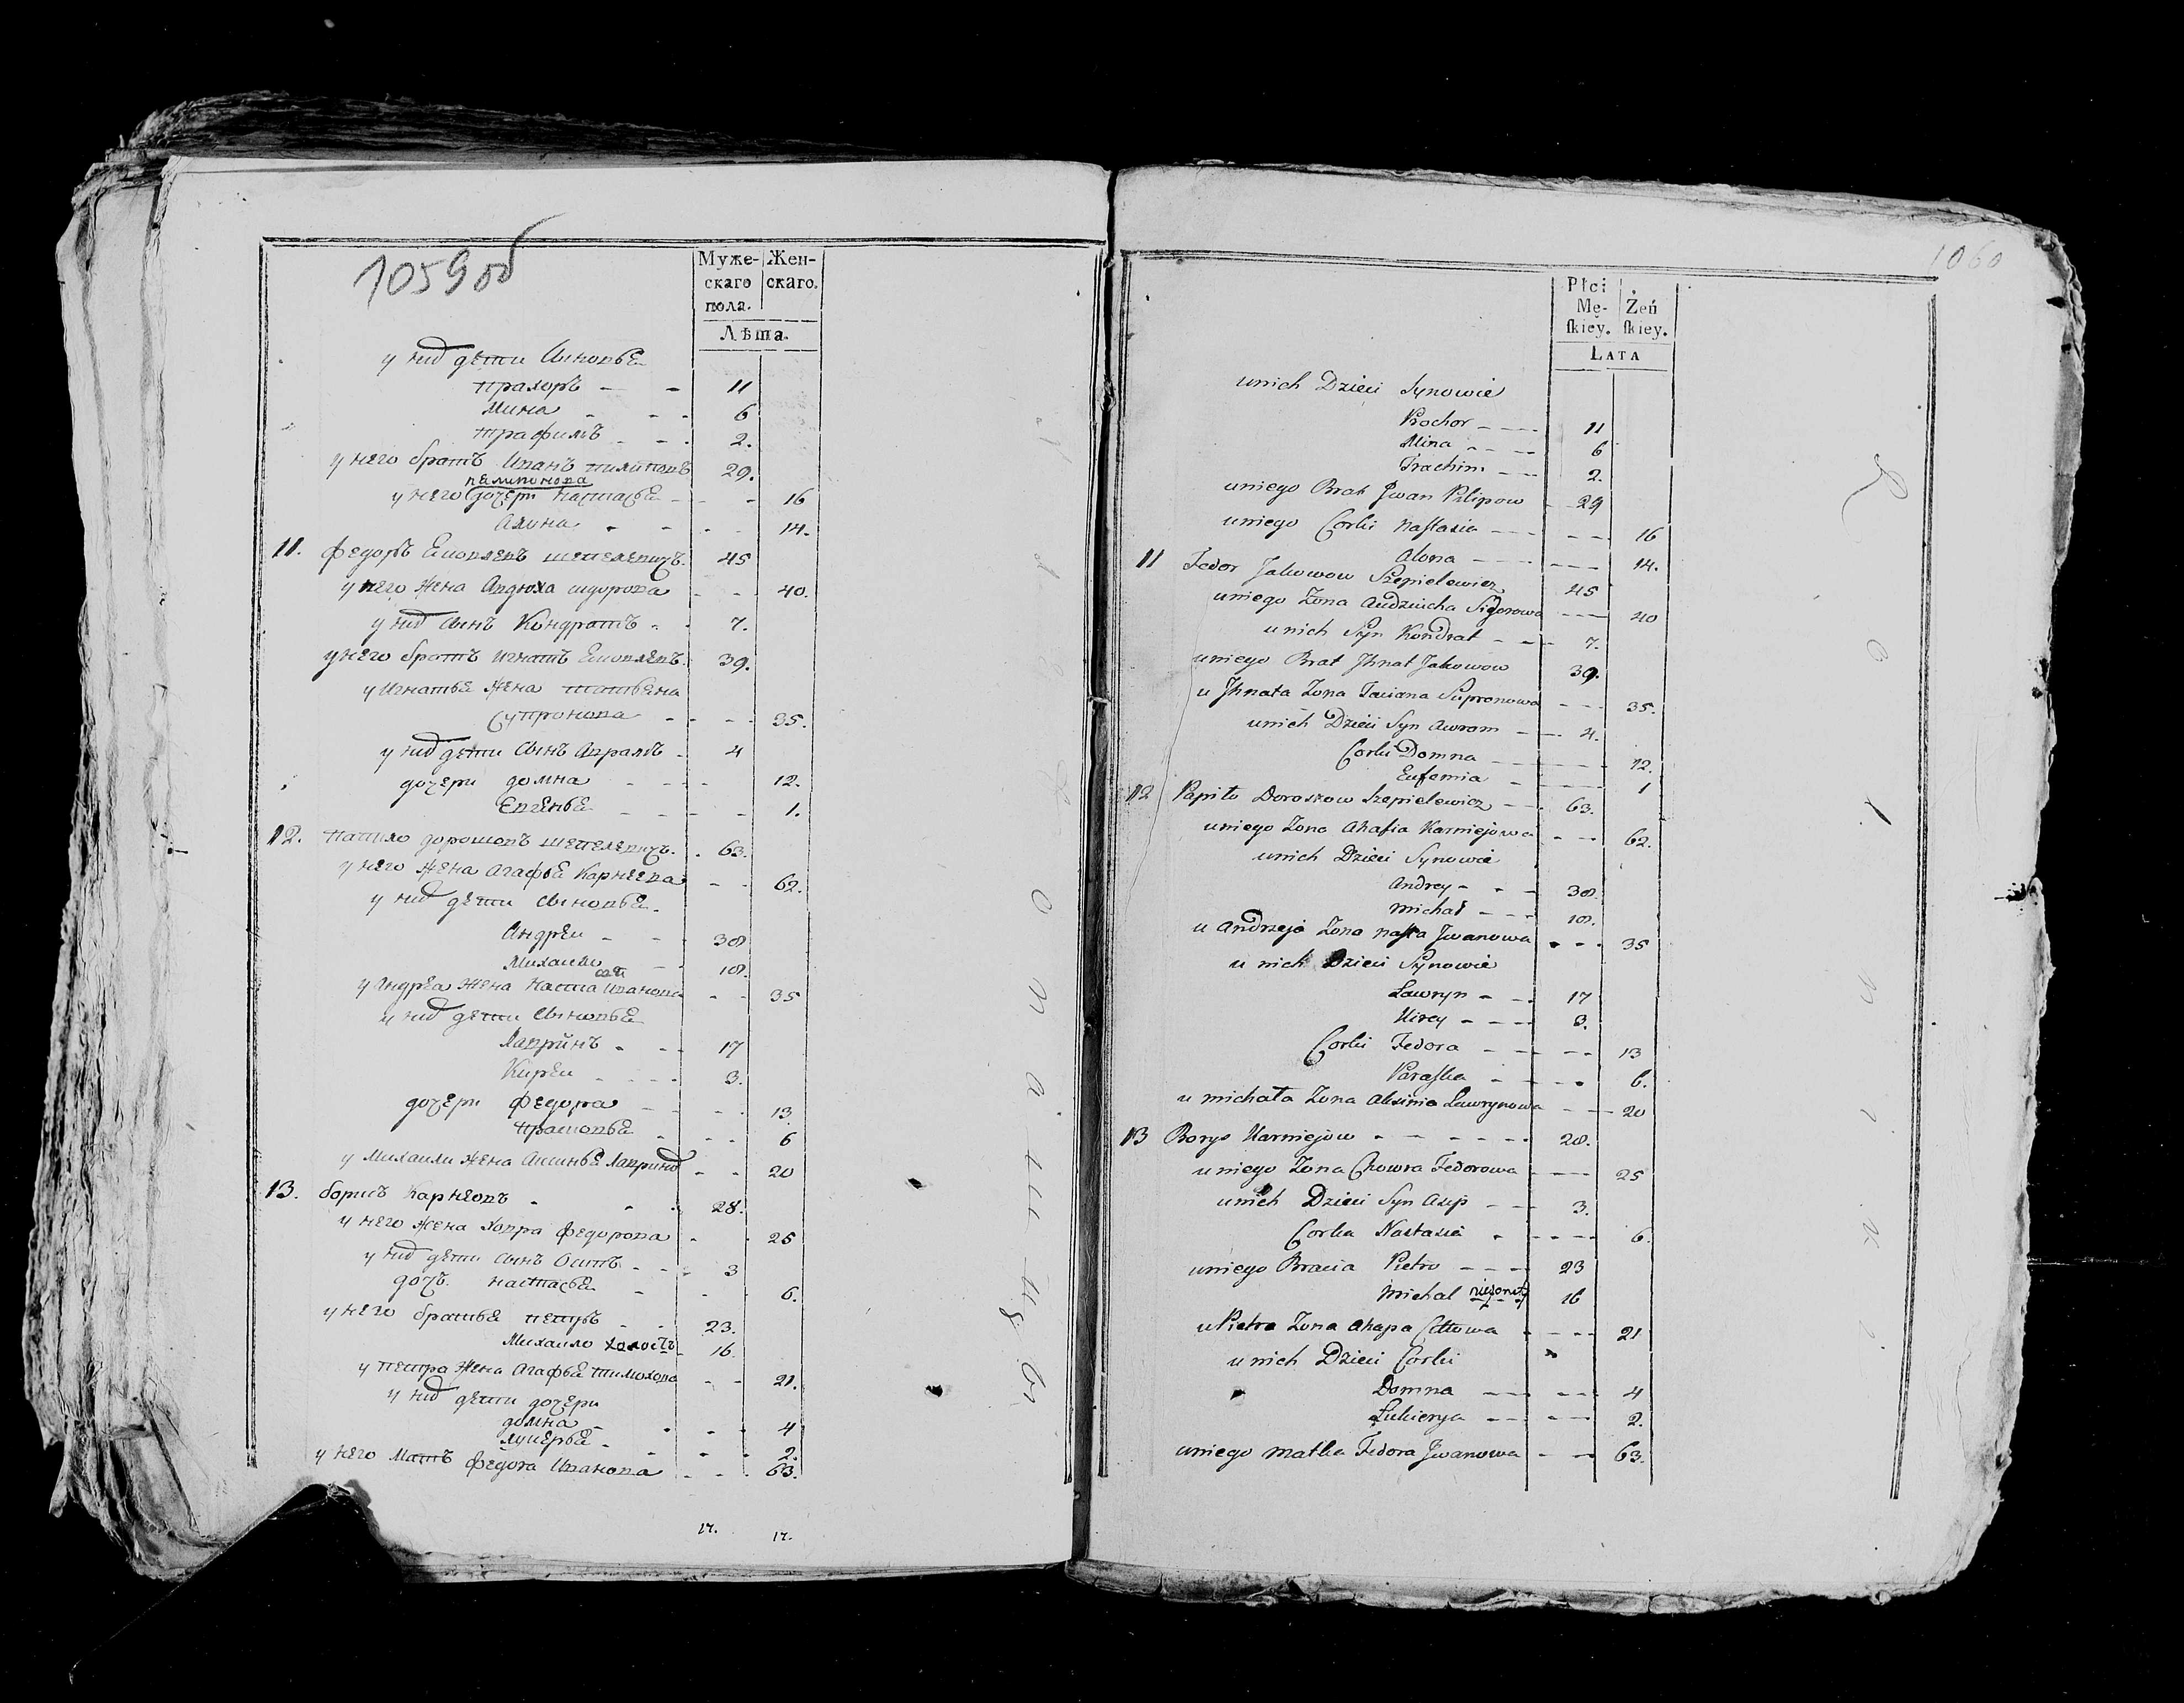 1059об
Муже- Жен-
скаго скаго.
пола.
Лѣта.
у них дети Синовья
Прахоръ - - 11
Мина - - - 6
Трафимъ - - - 2.
у него братъ Иванъ Пилиповъ 29.
у него дочери Настасья - - - 16
Алюна - - - - 14.
11. Федоръ Яковлевъ Шепелевичъ. 45
у него жена Авдюха Сидорова - - - 40.
у них Синъ Кондратъ - - 7.
у него братъ Игнатъ Яковлевъ. 39.
у Игнатья жена Татьяна
Супронова - - - - 35.
у них дети Синъ Аврамъ - 4
дочери домна - - - - 12.
Евгенья - - - - 1.
12. Папило дорошовъ Шепелевичъ. - 63.
у него жена Агафья Карнеева - - 62.
у них дети Синовья.
Андреи - - - 38
Михаило - 18.
у Андрея жена Наста Иванова - - 35
у них дети Синовья
Лавринъ - - - 17
Киреи - - - - 3.
дочери Федора - - - - 13
Прасковья - - - 6
у Михаили жена Аксинья Лаврино - - 20
13. борисъ Карнеовъ - - - 28.
у него жена Ховра Федорова - - 25
у них дети Синъ Осипъ - - - 3
дочь настасья - - - 6.
у него братья петръ - - 23.
Михаило холостъ - 16.
у петра жена Агафья Тимохова - - 21.
у них дети дочери
домна - - - - 4
лукерья - - - - 2.
у него Мать Федора Иванова - - - 63.
17. 17.
1060
Płci
Mę- Żeń
ſkiey. ſkiey.
LATA
unich Dzieci Synowie
Prochor - - - - 11
Mina - - - - 6
Trachim - - - 2.
uniego Brat Jwan Pilipow - 29
uniego Corki Naſtasia - - - - - - 16
Alona - - - - - - - 14.
11 Fedor Jakowow Szepielewicz 45
uniego Żona Audziucha Sidorowa - - - 40
unich Syn Kondrat - - - 7.
uniego Brat Jhnat Jakowow 39.
u Jhnata Żona Taciana Supronowa - - - 35.
unich Dzieci Syn Awram - - - 4.
Corki Domna - - - - - - 12.
Eufemia - - - - - 1
12 Papiło Doroszow Szepielewicz - - - 63.
uniego Żona Ahafia Karniejowa - - - 62.
unich Dzieci Synowie
Andrey - - - 38.
Michał - - - 18.
u Andrzeja Żona Naſta Jwanowa - - - 35
u nich Dzieci Synowie
Lawryn - - - 17
Kirey - - - - 3.
Corki Fedora - - - - - 13
Paraſka - - - - 6.
u Michała Żona Aksinia Lawrynowa - - - 20
13 Borys Karniejow - - - - - - 28.
uniego Żona Chowra Fedorowa - - - - 25
unich Dzieci Syn Asip - - - 3.
Corka Nastasia - - - - - 6.
uniego Bracia Pietro - - - - 23
Michal nieżonaty 16
u Pietra Żona Ahapa - - - - 21
unich Dzieci Corki
Domna - - - - - - 4
Łukierya - - - - - 2.
uniego Matka Fedora Jwanowa - - - 63.